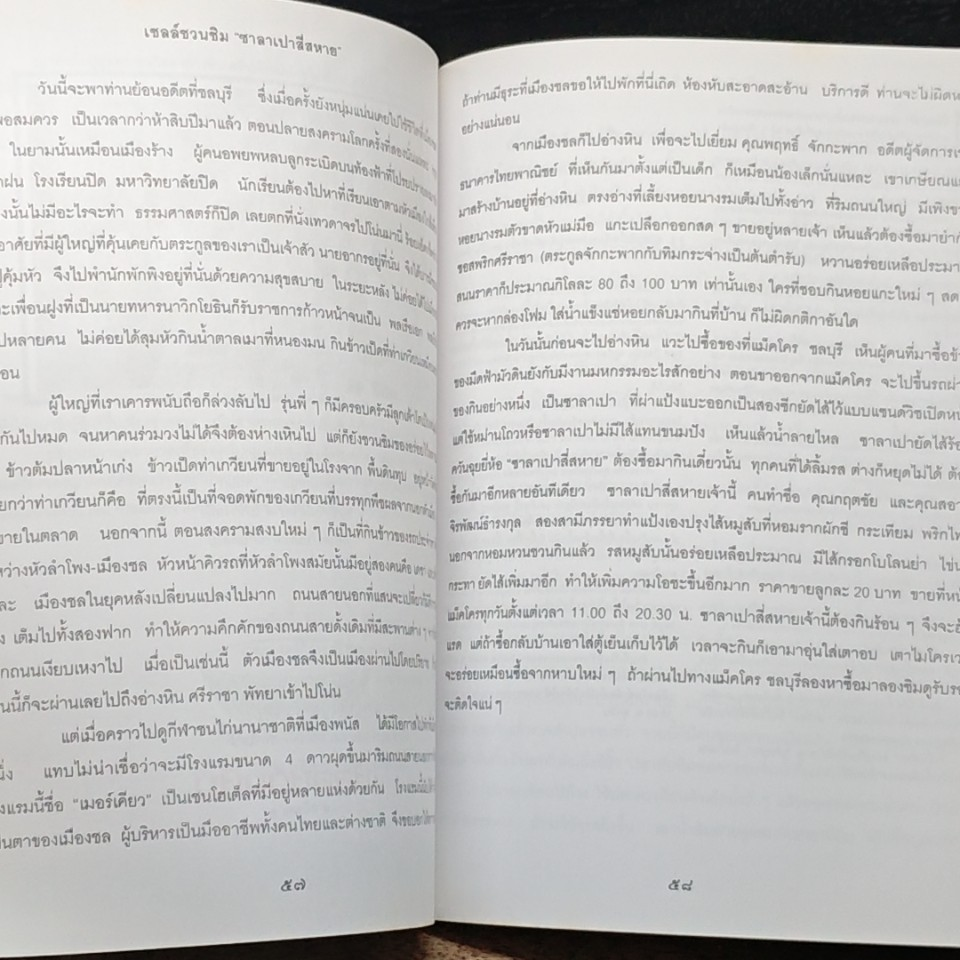 เชลล์ชวนชิม "ซาลาเปาสี่สหาย"
วันนี้จะพาท่านย้อนอดีตที่ชลบุรี ซึ่งเมื่อครั้งยังหนุ่มแน่นเคยไปใช้ชีวิต
พอสมควร เป็นเวลากว่าห้าสิบปีมาแล้ว ตอนปลายสงครามโลกครั้งที่สอง
ในยามนั้นเหมือนเมืองร้าง ผู้คนอพยพหลบลูกระเบิดบนท้องฟ้าที่
โรงเรียนปิด มหาวิทยาลัยปิด นักเรียนต้องไปหาที่เรียนเอาตามหัวเมือง
นั้นไม่มีอะไรจะทำ ธรรมศาสตร์ก็ปิด เลยตกที่นั่งเทวดาจรไปโน่นมานี่
อาศัยที่มีผู้ใหญ่ที่คุ้นเคยกับตระกูลของเราเป็นเจ้าสัว นายอากรอยู่ที่นั่น
คุ้มหัว จึงไปพำนักพักพิงอยู่ที่นั่นด้วยความสุขสบาย ในระยะหลัง ไม่ค่อยได้
ะเพื่อนฝูงที่เป็นนายทหารนาวิกโยธินก็รับราชการก้าวหน้าจนเป็น พลเรือเอก
ปหลายคน ไม่ค่อยได้สุมหัวกินน้ำตาลเมาที่หนองมน กินข้าวเปิดที่ท่าเกวียน
อน
ผู้ใหญ่ที่เราเคารพนับถือก็ล่วงลับไป รุ่นพี่ ๆ ก็มีครอบครัวมีลูกเต้า
กันไปหมด จนหาคนร่วมวงไม่ได้จึงต้องห่างเหินไป แต่ก็ยังชวนชิมของอร่อยไว้
ข้าวต้มปลาหน้าเก๋ง ข้าวเปิดท่าเกวียนที่ขายอยู่ในโรงจาก พื้นดินทุบ
ยกว่าท่าเกวียนก็คือ ที่ตรงนี้เป็นที่จอดพักของเกวียนที่บรรทุกพืชผล
ขายในตลาด นอกจากนี้ ตอนสงครามสงบใหม่ ๆ ก็เป็นที่กินข้าวของรถประจำ
หว่างหัวลำโพง-เมืองชล หัวหน้าคิวรถที่หัวลำโพงสมัยนั้นมีอยู่สองคนคือ
ละ เมืองชลในยุคหลังเปลี่ยนแปลงไปมาก ถนนสายนอกที่แสนจะเปลี่ยว
ง เต็มไปทั้งสองฟาก ทำให้ความคึกคักของถนนสายดั้งเดิมที่มีสะพานต่าง ๆ
กถนนเงียบเหงาไป เมื่อเป็นเช่นนี้ ตัวเมืองชลจึงเป็นเมืองผ่านไปโดย
นนี้ก็จะผ่านเลยไปถึงอ่างหิน ศรีราชา พัทยาเข้าไปโน่น
แต่เมื่อคราวไปดูกีฬาชนไก่นานาชาติที่เมืองพนัส ได้มีโอกาส
นึ่ง แทบไม่น่าเชื่อว่าจะมีโรงแรมขนาด 4 ดาวผุดขึ้นมาริมถนน
งแรมนี้ชื่อ "เมอร์เคียว" เป็นเชนโฮเต็ลที่มีอยู่หลายแห่งด้วยกัน
ป็นตาของเมืองชล ผู้บริหารเป็นมืออาชีพทั้งคนไทยและต่างชาติ
๕๗
ถ้าท่านมีธุระที่เมืองชลขอให้ไปพักที่นี่เถิด ห้องหับสะอาดสะอ้าน บริการดี ท่านจะไม่ผิด
อย่างแน่นอน
จากเมืองชลก็ไปอ่างหิน เพื่อจะไปเยี่ยม คุณพฤทธิ์ จักกะพาก อดีตผู้จัดการ
ธนาคารไทยพาณิชย์ ที่เห็นกันมาตั้งแต่เป็นเด็ก ก็เหมือนน้องเล็กนั่นแหละ เขาเกษียณแ
มาสร้างบ้านอยู่ที่อ่างหิน ตรงอ่างที่เลี้ยงหอยนางรมเต็มไปทั้งอ่าว ที่ริมถนนใหญ่ มีเพิงข
หอยนางรมตัวขาดหัวแม่มือ แกะเปลือกออกสด ๆ ขายอยู่หลายเจ้า เห็นแล้วต้องซื้อมายำกั
ซอสพริกศรีราชา (ตระกูลจักกะพากกับทิมกระจ่างเป็นต้นตำรับ) หวานอร่อยเหลือประมา
สนนราคาก็ประมาณกิโลละ 80 ถึง 100 บาท เท่านั้นเอง ใครที่ชอบกินหอยแกะใหม่ ๆ สด
ควรจะหากล่องโฟม ใส่น้ำแข็งแช่หอยกลับมากินที่บ้าน ก็ไม่ผิดกติกาอันใด
ในวันนั้นก่อนจะไปอ่างหิน แวะไปซื้อของที่แม็คโคร ชลบุรี เห็นผู้คนที่มาซื้อข้า
ของมืดฟ้ามัวดินยังกับมีงานมหกรรมอะไรสักอย่าง ตอนขาออกจากแม็คโคร จะไปขึ้นรถผ่า
ของกินอย่างหนึ่ง เป็นซาลาเปา ที่ผ่าแป้งแบะออกเป็นสองซีกยัดไส้ไว้แบบแซนด์วิชเปิดห
แต่ใช้หมั่นโถวหรือซาลาเปาไม่มีไส้แทนขนมปัง เห็นแล้วน้ำลายไหล ซาลาเปายัดไส้ร้อ
ควันฉุยยี่ห้อ "ซาลาเปาสี่สหาย" ต้องซื้อมากินเดี๋ยวนั้น ทุกคนที่ได้ลิ้มรส ต่างก็หยุดไม่ได้ ต้อ
ซื้อกันมาอีกหลายอันทีเดียว ซาลาเปาสี่สหายเจ้านี้ คนทำชื่อ คุณกฤตชัย และคุณสอา
จิรพัฒน์ธำรงกุล สองสามีภรรยาทำแป้งเองปรุงไส้หมูสับที่หอมรากผักชี กระเทียม พริกไท
นอกจากหอมหวนชวนกินแล้ว รสหมูสับนั้นอร่อยเหลือประมาณ มีไส้กรอกโบโลนย่า ไข่น
กระทา ยัดไส้เพิ่มมาอีก ทำให้เพิ่มความโอชะขึ้นอีกมาก ราคาขายลูกละ 20 บาท ขายที่หน้
แม็คโครทุกวันตั้งแต่เวลา 11.00 ถึง 20.30 น. ซาลาเปาสี่สหายเจ้านี้ต้องกินร้อน ๆ จึงจะอ
แรด แต่ถ้าซื้อกลับบ้านเอาใส่ตู้เย็นเก็บไว้ได้ เวลาจะกินก็เอามาอุ่นใส่เตาอบ เตาไมโครเว
จะอร่อยเหมือนซื้อจากหาบใหม่ ๆ ถ้าผ่านไปทางแม็คโคร ชลบุรีลองหาซื้อมาลองชิมดูรับร
จะติดใจแน่ ๆ
๕๘